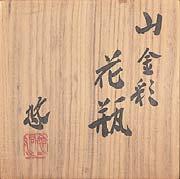 山金彩
花瓶
悠